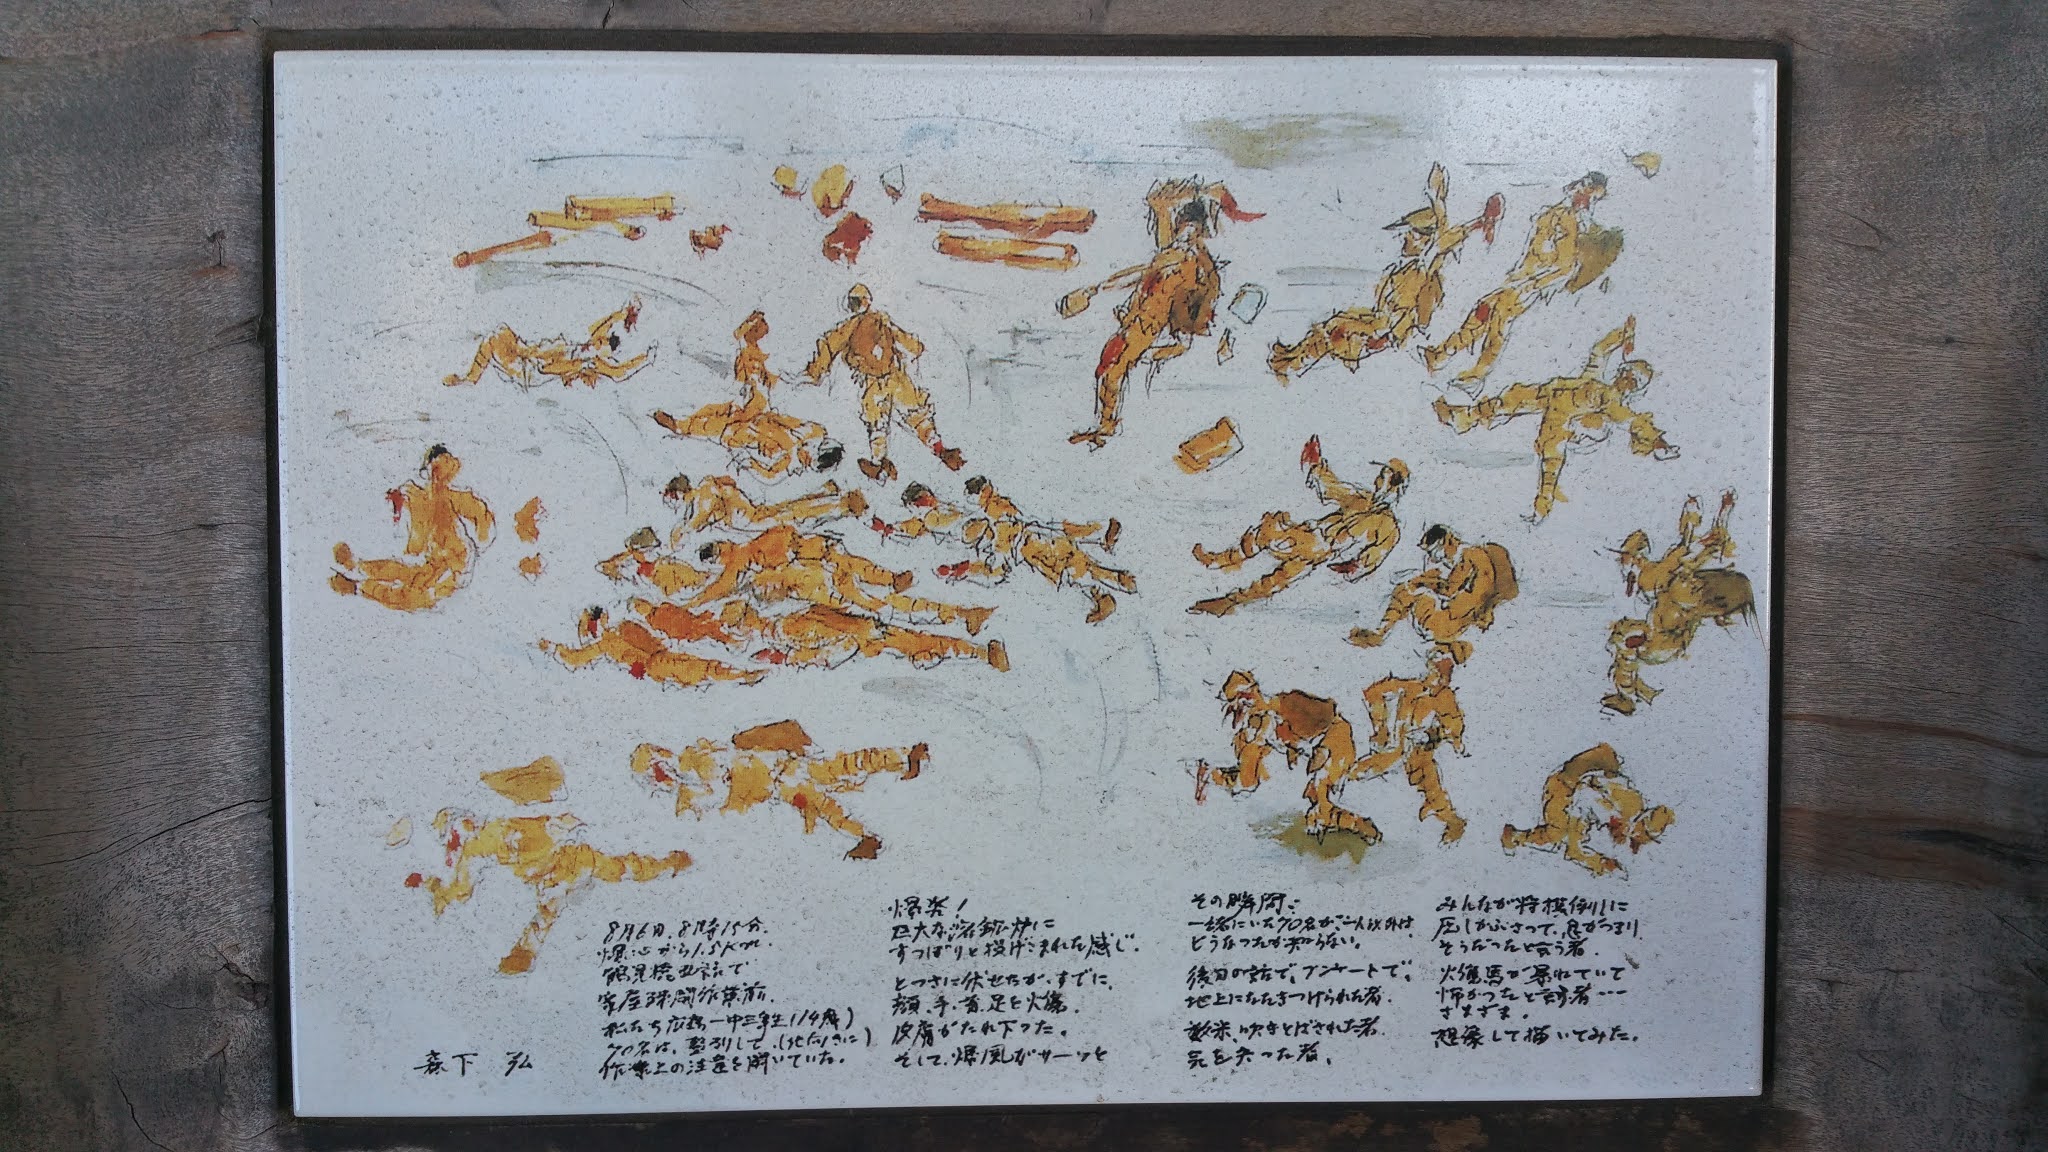 8月6日、8時15分。
爆心から1.5Km。
鶴見橋北詰で
家屋疎開作業前。
私たち広島一中三年生(14歳)
70名は、整列して、(北だけに)
作業上の注意を聞いていた。
森下 弘
爆発!
巨大な溶鉱炉に
すっぽりと投げこまれた感じ。
とっさに伏せたが、すでに、
顔、手、首、足を火傷。
皮膚がたれ下った。
そして、爆風がサーッと
その瞬間:
一緒にいた70名が、二人以外は
どうなったか知らない。
後日の話で、アンケートで、
地上にたたきつけられた者。
数米、吹きとばされた者。
気を失った者、
みんなが将棋倒しに
圧しかぶさって、息がつまり
そうだったと云う者。
火傷馬が暴れていて
怖かったと云う者‥‥
さまざま。
想像して描いてみた。